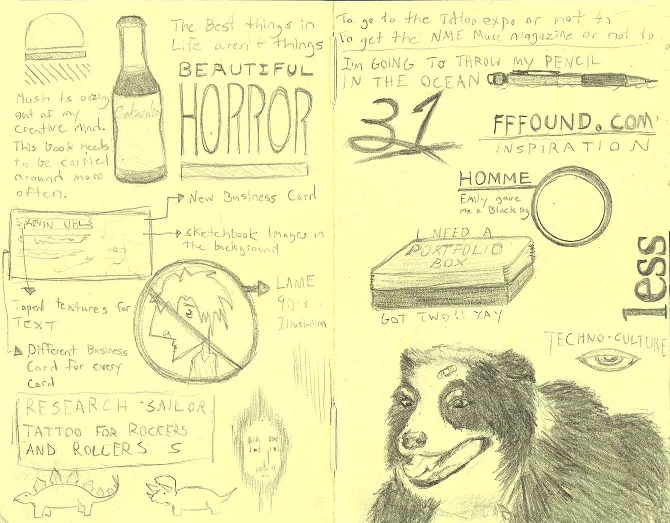 The Best things in
Life aren't things
BEAUTIFUL
HORROR
Mush is oozing
out of my
creative mind.
This book needs
to be carried
around more
often.
New Business Card
Sketchbook Images in
the background
KEVIN UHLS
Taped textures for
TEXT
Different Business
Card for every
Card
LAME
90's
Illustration
RESEARCH "SAILOR
TATTOO FOR ROCKERS
AND ROLLERS 5
To go to the Tattoo expo or not to
To get the NME Music magazine or not to
I'm GOING TO THROW MY PENCIL
IN THE OCEAN
31
FFFOUND.COM
INSPIRATION
HOMME
Emily gave
me a Black Ring
I NEED A
PORTFOLIO
BOX
GOT TWO!! YAY
less
TECHNO-CULTURE